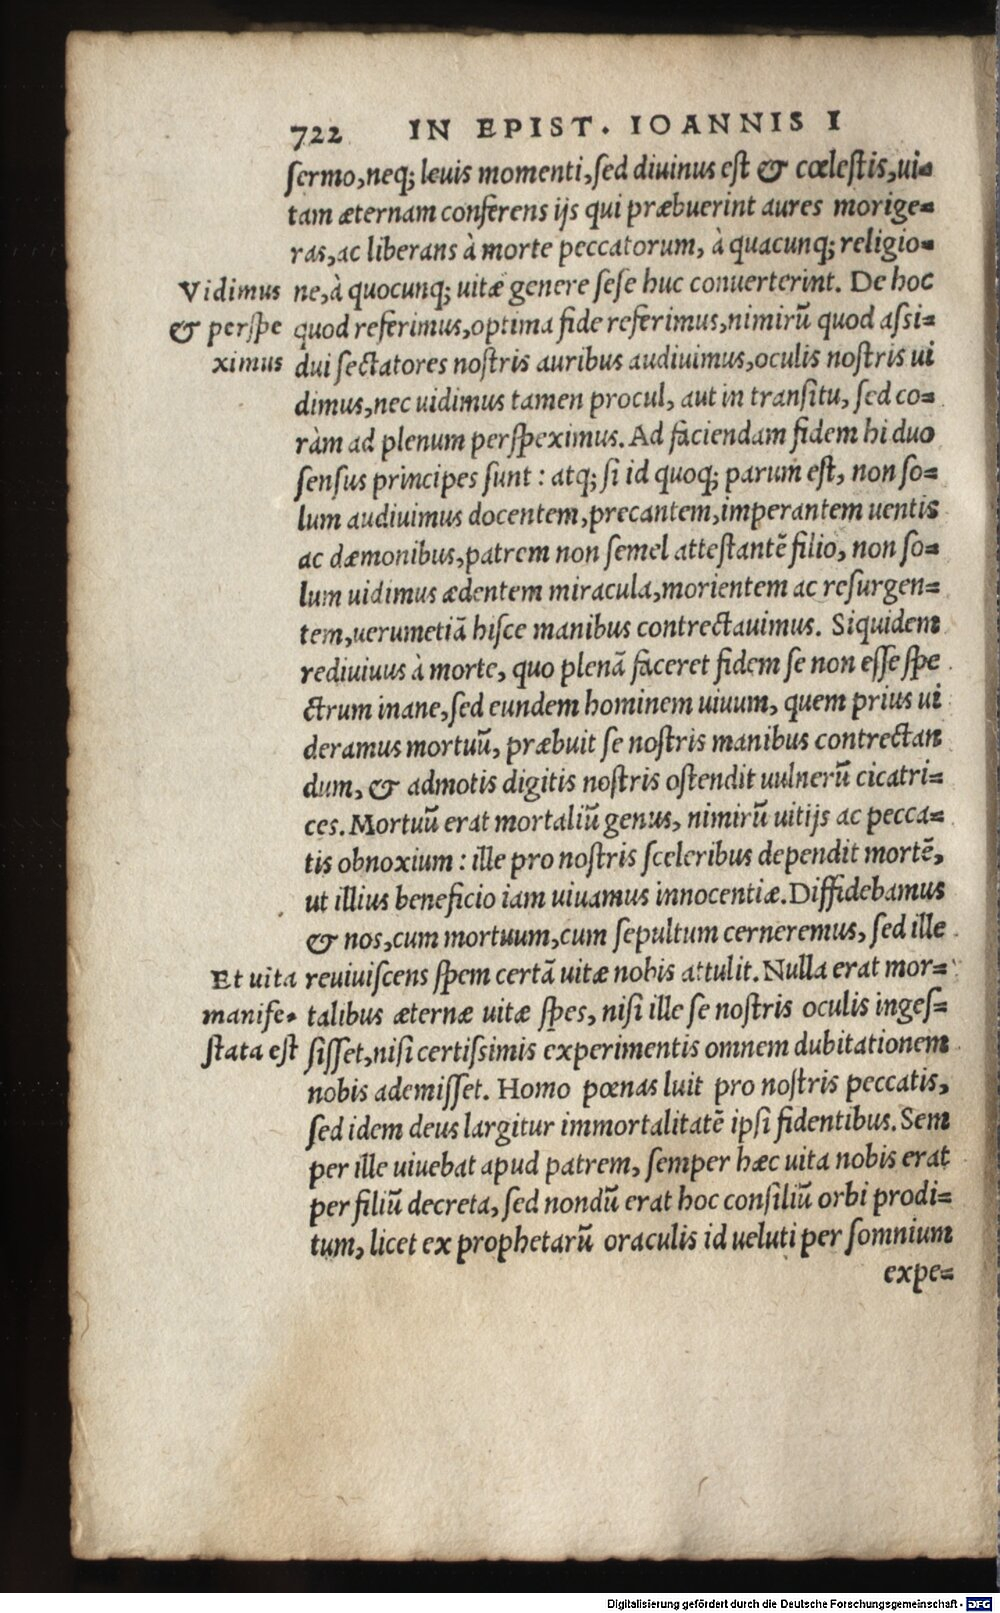 722 IN EPIST. IOANNIS I
sermo,neq; leuis momenti,sed diuinus est & cœlestis,ui=
tam æternam conferens ijs qui præbuerint aures morige=
ras,ac liberans à morte peccatorum, à quacunq; religio=
Vidimus ne,à quocunq; uitæ genere sese huc conuerterint. De hoc
& perspe quod referimus,optima fide referimus,nimirũ quod assi=
ximus dui sectatores nostris auribus audiuimus,oculis nostris ui
dimus,nec uidimus tamen procul, aut in transitu, sed co=
ràm ad plenum perspeximus. Ad faciendam fidem hi duo
sensus principes sunt : atq; si id quoq; parum est, non so=
lum audiuimus docentem,precantem,imperantem uentis
ac dæmonibus,patrem non semel attestantẽ filio, non so=
lum uidimus ædentem miracula,morientem ac resurgen=
tem,uerumetiã hisce manibus contrectauimus. Siquidem
rediuiuus à morte, quo plenã faceret fidem se non esse spe
ctrum inane,sed eundem hominem uiuum, quem prius ui
deramus mortuũ, præbuit se nostris manibus contrectan
dum, & admotis digitis nostris ostendit uulnerũ cicatri=
ces. Mortuũ erat mortaliũ genus, nimirũ uitijs ac pecca=
tis obnoxium : ille pro nostris sceleribus dependit mortẽ,
ut illius beneficio iam uiuamus innocentiæ. Diffidebamus
& nos,cum mortuum,cum sepultum cerneremus, sed ille
Et uita reuiuiscens spem certã uitæ nobis attulit. Nulla erat mor=
manife= talibus æternæ uitæ spes, nisi ille se nostris oculis inges=
stata est sisset,nisi certissimis experimentis omnem dubitationem
nobis ademisset. Homo pœnas luit pro nostris peccatis,
sed idem deus largitur immortalitatẽ ipsi fidentibus. Sem
per ille uiuebat apud patrem, semper hæc uita nobis erat
per filiũ decreta, sed nondũ erat hoc consiliũ orbi prodi=
tum, licet ex prophetarũ oraculis id ueluti per somnium
expe=
Digitalisierung gefördert durch die Deutsche Forschungsgemeinschaft - DFG